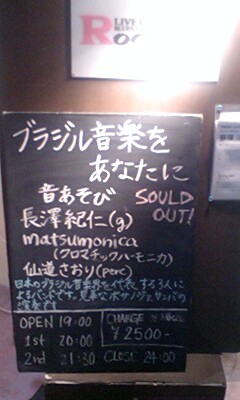 R LIVE
ブラジル音楽を
あなたに
音あそび SOULD
OUT!
長澤紀仁(g)
matsumonica
(クロマチックハーモニカ)
仙道さおり(perc)
日本のブラジル音楽界を代表する3人に
よるバンドです。見事なボサノヴァ、サンバの
演奏です
OPEN 19:00
1st 20:00
2nd 21:30
CHARGE
¥2500-
CLOSE 24:00